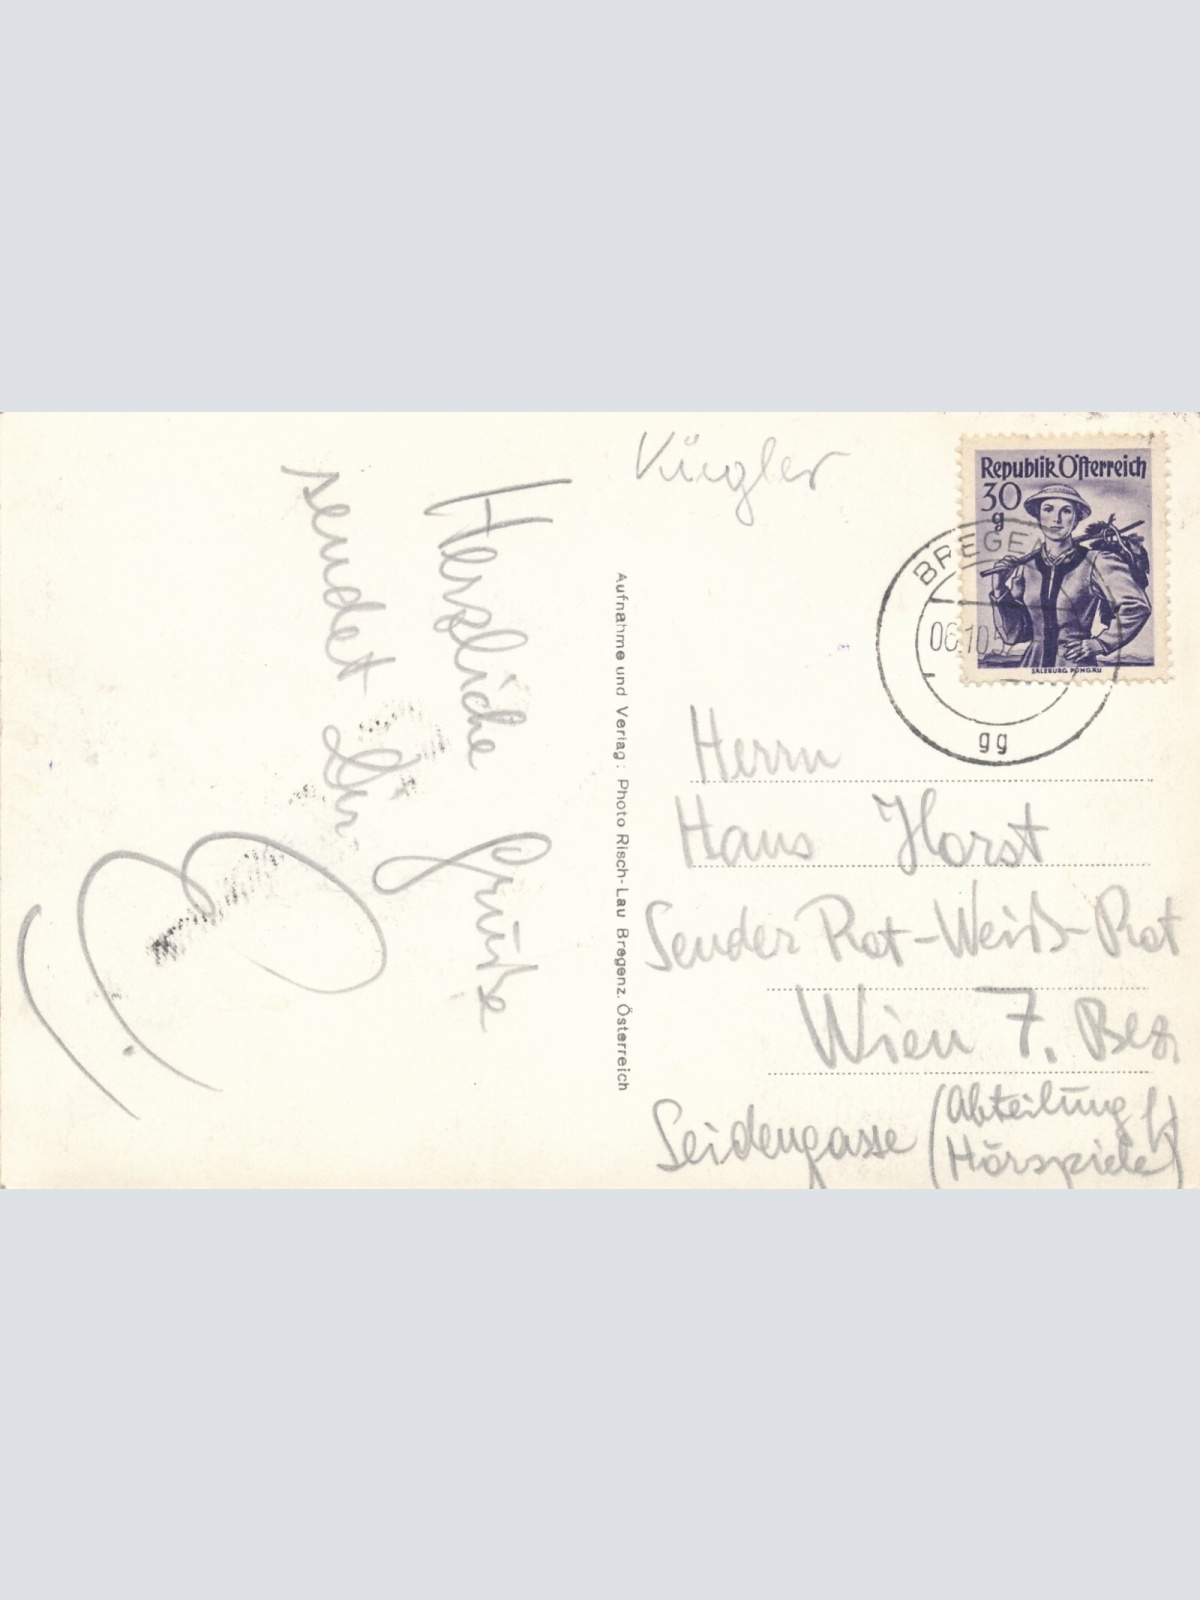 Kügler
Republik Österreich
30
g
SALZBURG PONGAU
BREGEN
06.10.5
gg
Herzliche Grüße
sendet Dir
Aufnahme und Verlag: Photo Risch-Lau Bregenz, Österreich
Herrn
Hans Horst
Sender Rot-Weiß-Rot
Wien 7. Bez
Seidengasse (Abteilung f.
Hörspiele)